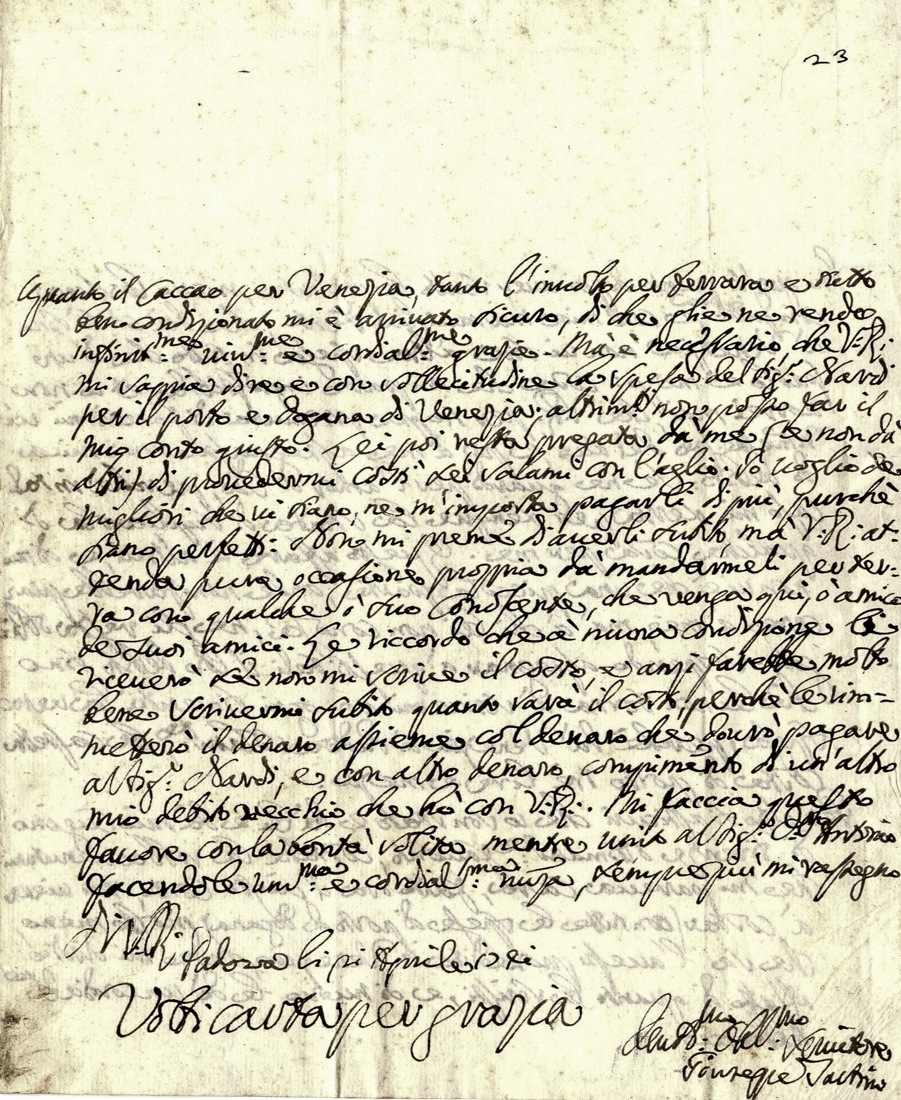 23
Quanto il Caccao per Venezia, tanto l'involto per Ferrara e tutto
ben condizionato mi è arrivato sicuro, di che glie ne rendo
infinit.me um.me e cordial.me grazie. Mà è necessario, che V. R.
mi sappia dire e con sollecitudine la spesa del Sig.r Nardi
per il porto e dogana di Venezia; altrim.ti non posso far il
mio conto giusto. Lei poi resta pregata da me (e non da
altri) di provedermi costì dei salami con l'aglio. Io voglio de
migliori che vi siano, ne m'importa pagarli di più, purchè
siano perfetti. Non mi preme di averli subito, mà V. R. at-
tenda pure occasione propria da mandarmeli per ter-
ra con qualche ò suo Conoscente, che venga qui, ò amico
de suoi amici. Le riccordo che à niuna condizione li
riceverò se non mi scrive il costo, e anzi farebbe molto
bene scrivermi subito quanto sarà il costo, perchè le rim-
metterò il denaro assieme col denaro che dovrò pagare
al Sig.r Nardi, e con altro denaro, compimento di un'altro
mio debito vecchio che hò con V. R. Mi faccia questo
favore con la bontà solita, mentre unito al Sig.r Antonio
facendole um.ma e cordial.ma riverenza, sempre più mi rassegno
Di V. R. Padova li Aprile
Volti carta per grazia
Obl.mo Servitore
Giuseppe Tartini